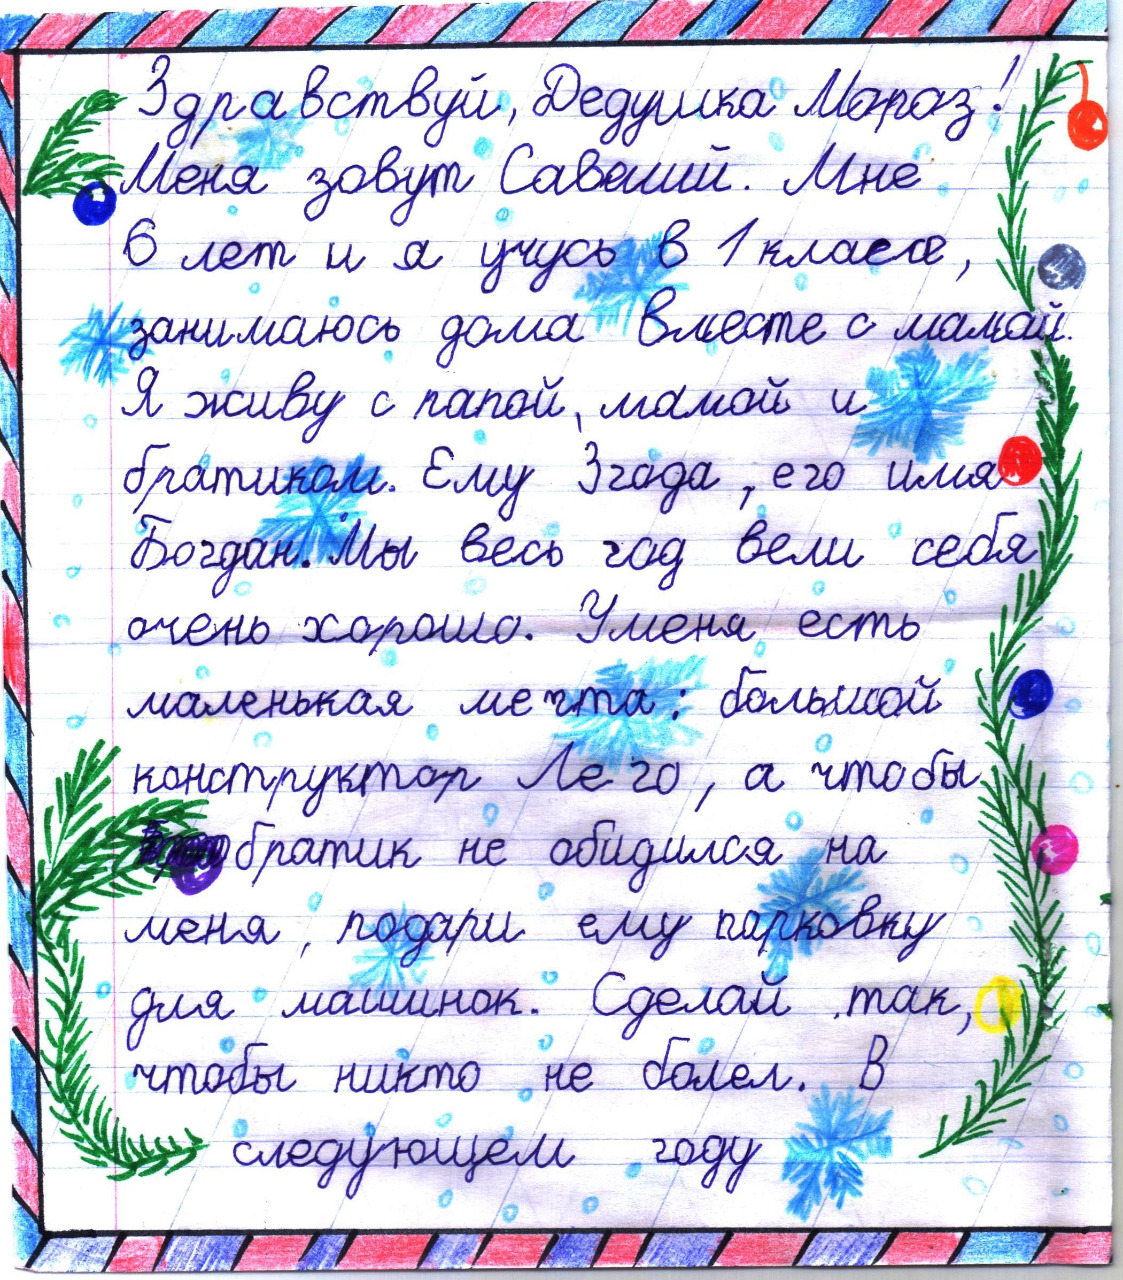 Здравствуй, Дедушка Мороз!
Меня зовут Савелий. Мне
6 лет и я учусь в 1 классе,
занимаюсь дома вместе с мамой.
Я живу с папой, мамой и
братиком. Ему 3 года, его имя
Богдан. Мы весь год вели себя
очень хорошо. У меня есть
маленькая мечта: большой
конструктор Лего, а чтобы
братик не обидился на
меня, подари ему парковку
для машинок. Сделай так,
чтобы никто не болел. В
следующем году